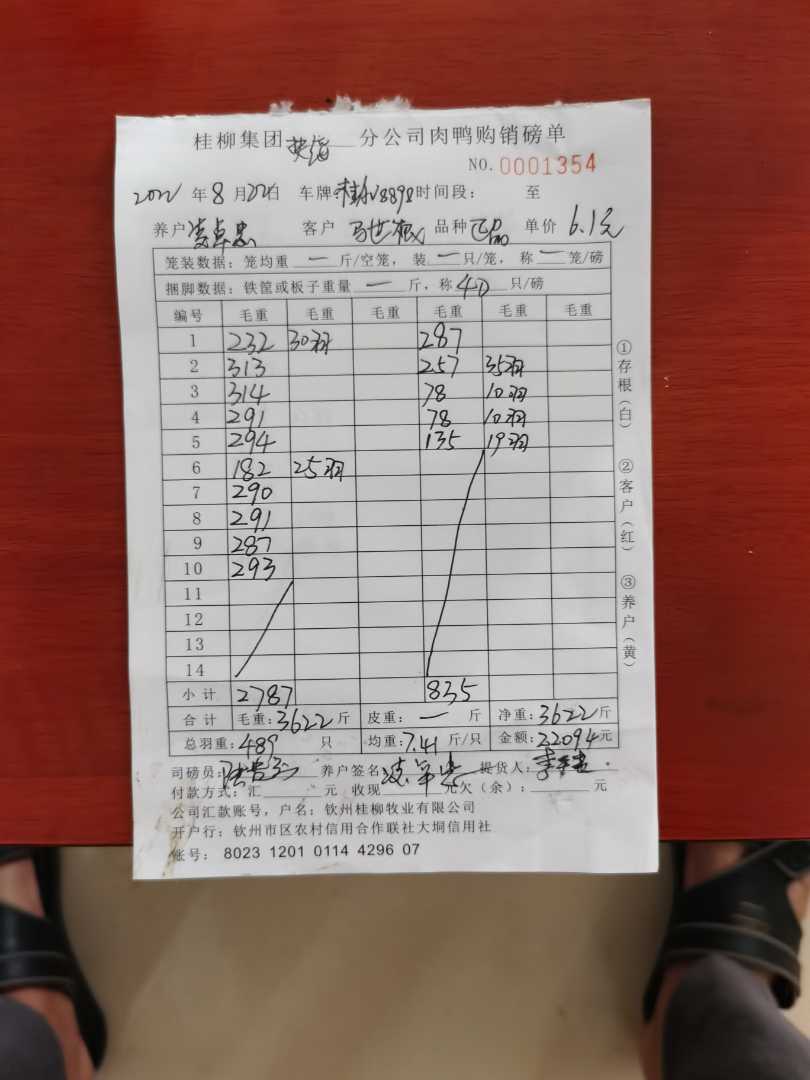 桂柳集团 分公司肉鸭购销磅单
NO. 0001354
2022 年 8 月 22日 车牌: 8898 时间段: 至
养户 凌卓忠 客户 马世 品种 正品 单价 6.1元
笼装数据: 笼均重 一 斤/空笼, 装 一 只/笼, 称 一 笼/磅
捆脚数据: 铁筐或板子重量 一 斤, 称 40 只/磅
编号 毛重 毛重 毛重 毛重 毛重 毛重
1 232 30羽 287
2 313 257 35羽
3 314 78 10羽
4 291 78 10羽
5 294 135 19羽
6 182 25羽
7 290
8 291
9 287
10 293
11
12
13
14
小计 2787 835
合计 毛重: 3622 斤 皮重: 一 斤 净重: 3622 斤
总羽重: 489 只 均重: 7.41 斤/只 金额: 22094 元
司磅员: 养户签名: 凌卓忠 提货人:
付款方式: 汇 元 收现 元欠(余): 元
公司汇款账号, 户名: 钦州桂柳牧业有限公司
开户行: 钦州市区农村信用合作联社大垌信用社
账号: 8023 1201 0114 4296 07
①存根(白)
②客户(红)
③养户(黄)